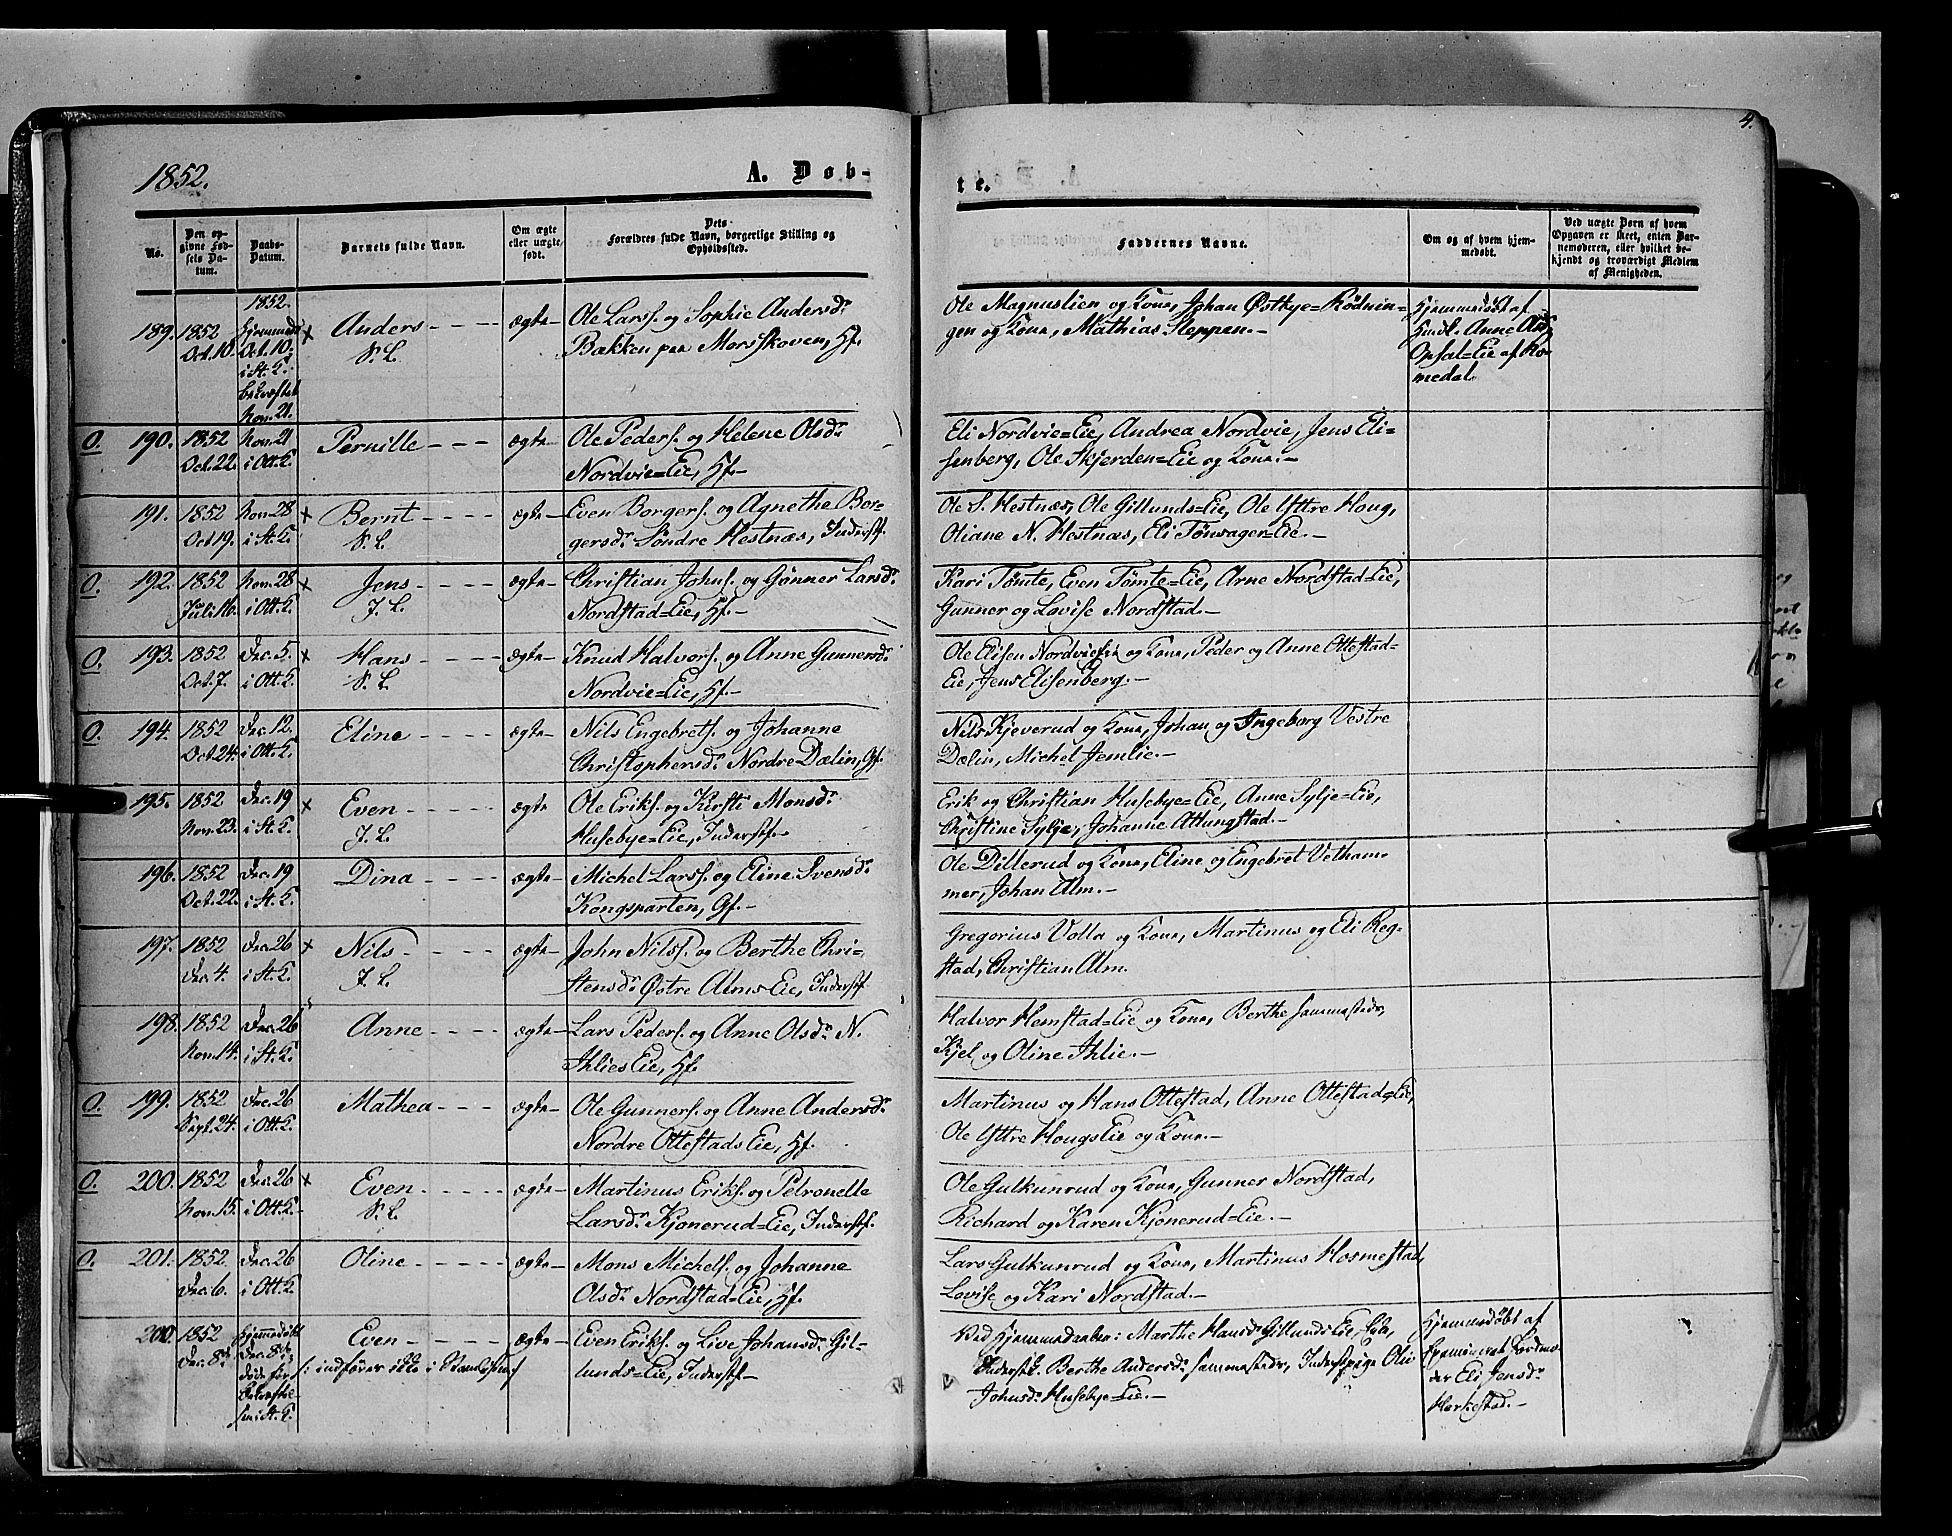 1852.
A. Døb-
te.
4.
No.
Den op-
givne Fød-
sels Da-
tum.
Daabs-
Datum.
Barnets fulde Navn.
Om ægte
eller uægte
født.
Dets
Forældres fulde Navn, borgerlige Stilling og
Opholdssted.
Faddernes Navne.
Om og af hvem hjem-
medøbt.
Ved uægte Børn af hvem
Opgaven er skeet, enten Bar-
nemoderen, eller hvilket be-
kjendt og troværdigt Medlem
af Menigheden.
189. 1852 Oct. 10.
1852. Hjemmedøbt
Oct. 10,
i St. K.
bekræftet
Nov. 21.
× Anders - - - - ægte
S. L.
Ole Larss. og Sophie Andersdr.
Bakken paa Morsskoven, Hf.
Ole Magnuslien og Kone, Johan Østbye-Rødnin-
gen og Kone, Mathias Steppen.-
Hjemmedøbt af
Anne
Opsal=Eie af Ro-
medal.
O. 190. 1852 Oct. 22. Nov. 21 i Ott. K. Pernille - - - ægte
Ole Peders. og Helene Olsdr.
Nordvie=Eie, Hf.-
Eli Nordvie=Eie, Andrea Nordvie, Jens Eli-
senberg, Ole Skjerden=Eie og Kone.-
191. 1852 Oct. 19. Nov. 28 i St. K. × Bernt - - - - ægte
S. L.
Even Borgers. og Agnethe Bor-
gersdr. Søndre Hestnæs, Inderstf.
Ole S. Hestnæs, Ole Gillunds=Eie, Ole Yttre Houg,
Oliane N. Hestnæs, Eli Tønsager=Eie.-
O. 192. 1852 Juli 16. Nov. 28 i Ott. K. × Jens - - - - ægte
J. L.
Christian Johns. og Gønner Larsdr.
Nordstad=Eie, Hf.-
Kari Tømte, Even Tømte=Eie, Arne Nordstad=Eie,
Gunner og Lovise Nordstad.-
O. 193. 1852 Oct. 7. Dec. 5. i Ott. K. × Hans - - - - ægte
S. L.
Knud Halvors. og Anne Gunnersdr.
Nordvie=Eie, Hf.-
Ole Elisen Nordvie=Eie og Kone, Peder og Anne Ottestad=
Eie, Jens Elisenberg.-
O. 194. 1852 Oct. 24. Dec. 12. i Ott. K. Eline - - - - ægte
Nils Engebrets. og Johanne
Christophersdr. Nordre Dælin, Gf.
Nils Kjeverud og Kone, Johan og Ingeborg Vestre
Dælin, Michel Jemlie.-
195. 1852 Nov. 23. Dec. 19 i St. K. × Even - - - - ægte
J. L.
Ole Eriks. og Kirsti Monsdr.
Husebye=Eie, Inderstf.-
Erik og Christian Husebye=Eie, Anne Sylje=Eie,
Christine Sylje, Johanne Attungstad.-
196. 1852 Oct. 22. Dec. 19 i St. K. Dina - - - - ægte
Michel Larss. og Eline Svensdr.
Kongsparten, Gf.-
Ole Dillerud og Kone, Eline og Engebret Vetham-
mer, Johan Alm.-
197. 1852 Dec. 4. Dec. 26 i St. K. × Nils - - - - ægte
J. L.
John Nilss. og Berthe Chri-
stensdr. Østre Alms Eie, Inderstf.
Gregorius Volla og Kone, Martinus og Eli Reg-
stad, Christian Alm.
198. 1852 Nov. 14. Dec. 26 i St. K. Anne - - - - ægte
Lars Peders. og Anne Olsdr. N.
Ihlies Eie, Hf.
Halvor Hemstad=Eie og Kone, Berthe sammesteds,
Kjel og Oline Ihlie.-
O. 199. 1852 Sept. 24. Dec. 26 i Ott. K. Mathea - - - ægte
Ole Gunners. og Anne Andersdr.
Nordre Ottestads Eie, Hf.
Martinus og Hans Ottestad, Anne Ottestad=Eie,
Ole Yttre Hougs Eie og Kone.-
O. 200. 1852 Nov. 15. Dec. 26 i Ott. K. × Even - - - - ægte
S. L.
Martinus Eriks. og Petronelle
Larsdr. Kjonerud=Eie, Inderstf.
Ole Gulkunrud og Kone, Gunner Nordstad,
Richard og Karen Kjonerud=Eie.-
O. 201. 1852 Dec. 6. Dec. 26 i Ott. K. Oline - - - - ægte
Mons Michels. og Johanne
Olsdr. Nordstad=Eie, Hf.
Lars Gulkunrud og Kone, Martinus Hosmestad,
Lovise og Kari Nordstad.-
1852 Dec. 8de
Hjemmedøbt
Dec. 8de,
døde før
Bekræftel-
sen i St. K.
Even - - - - ægte
Even Eriks. og Live Johansdr. Gil-
lunds=Eie, Inderstf.-
Ved Hjemmedaaben: Marthe Hansdr. Gillunds Eie,
Inderstk. Berthe Andersdr. sammesteds, Inderstpige Oline
Johnsdr. Husebye=Eie.-
Hjemmedøbt af
examineret Jordmo-
der Eli Jensdr.
Harkestad.-